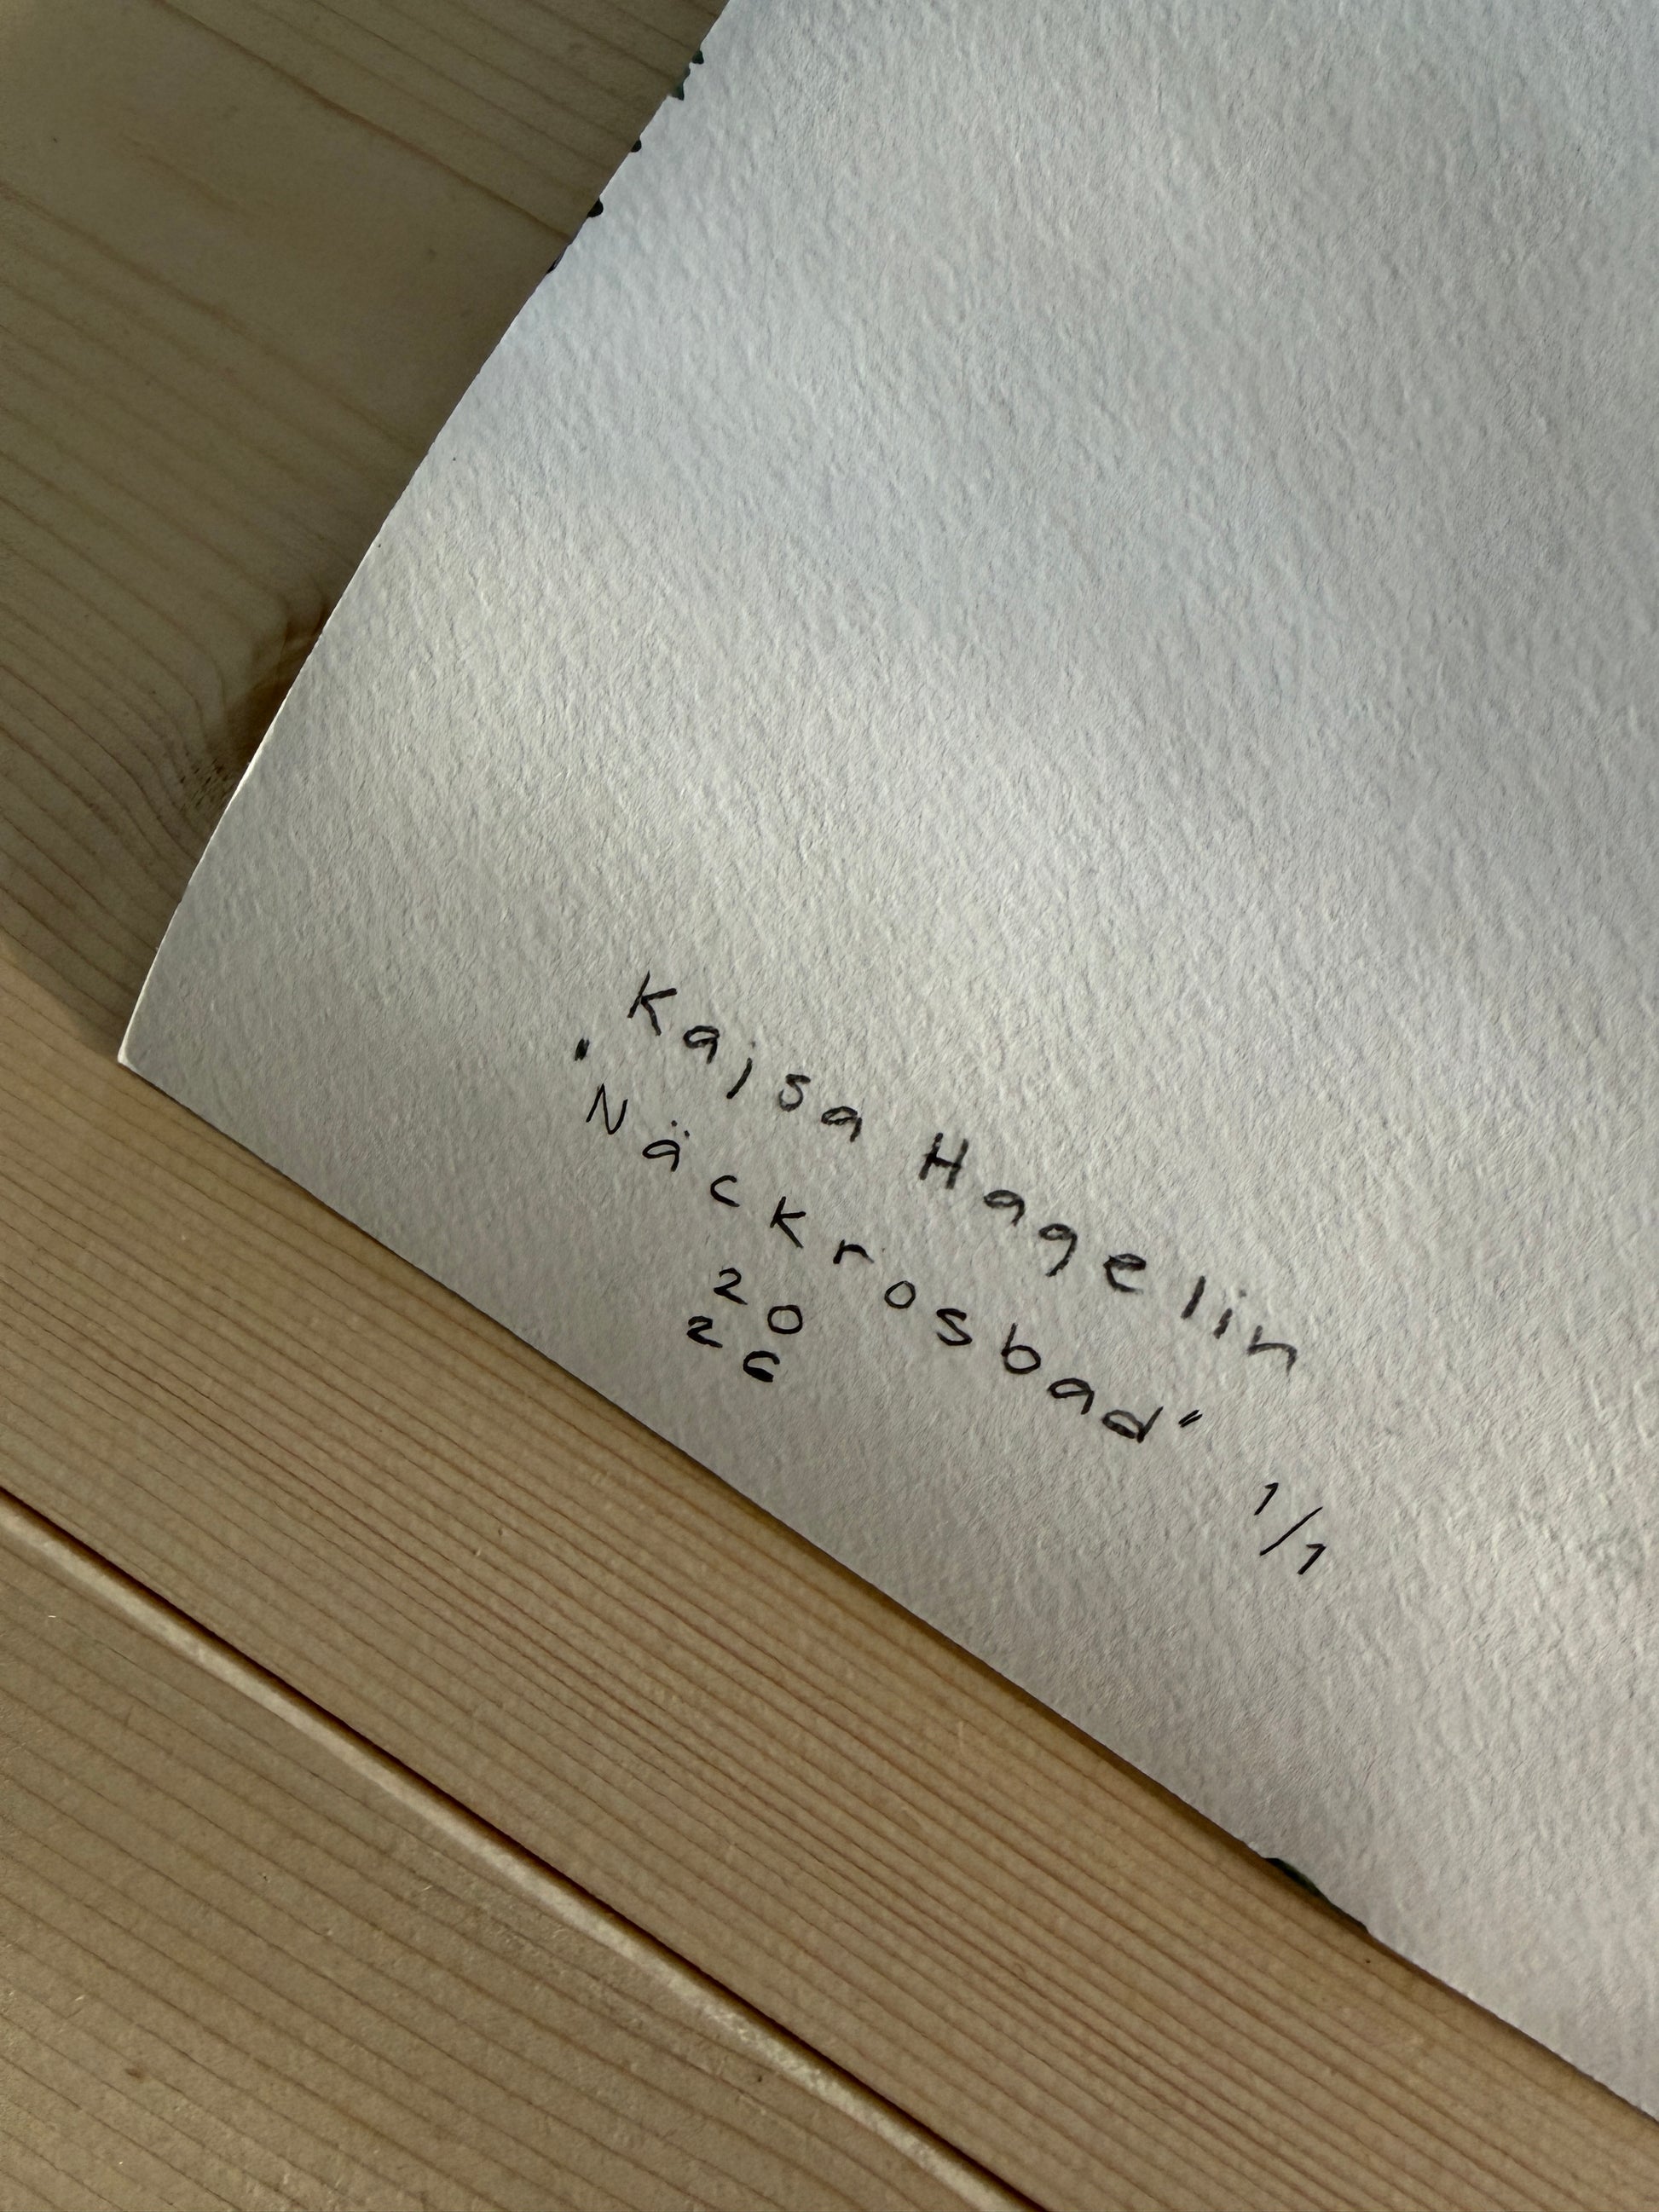 Kajsa Hagelin
"Näckrosbad"
20
26
1/1